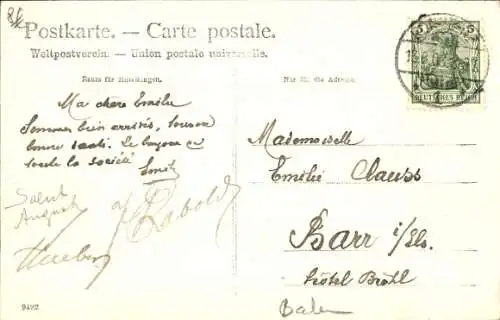 Postkarte. — Carte postale.
Weltpostverein. — Union postale universelle.
Raum für Mitteilungen.
Nur für die Adresse.
DEUTSCHES REICH
5
Ma chère Emilie
Sommes bien arrivés, tous en
bonne santé. Le bonjour de
toute la société
Emil
Salut
August
Rabold
Mademoiselle
Emilie Clauss
Barr i/Els.
Hôtel Brühl
9422